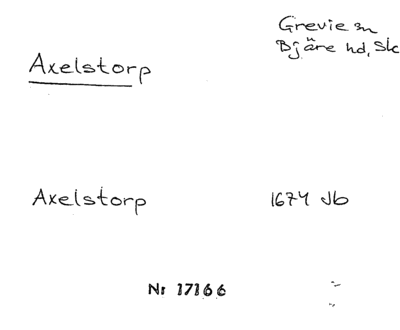 Grevie sn
Bjäre hd, Sk
Axelstorp
Axelstorp 1674 Jb
Nr 17166